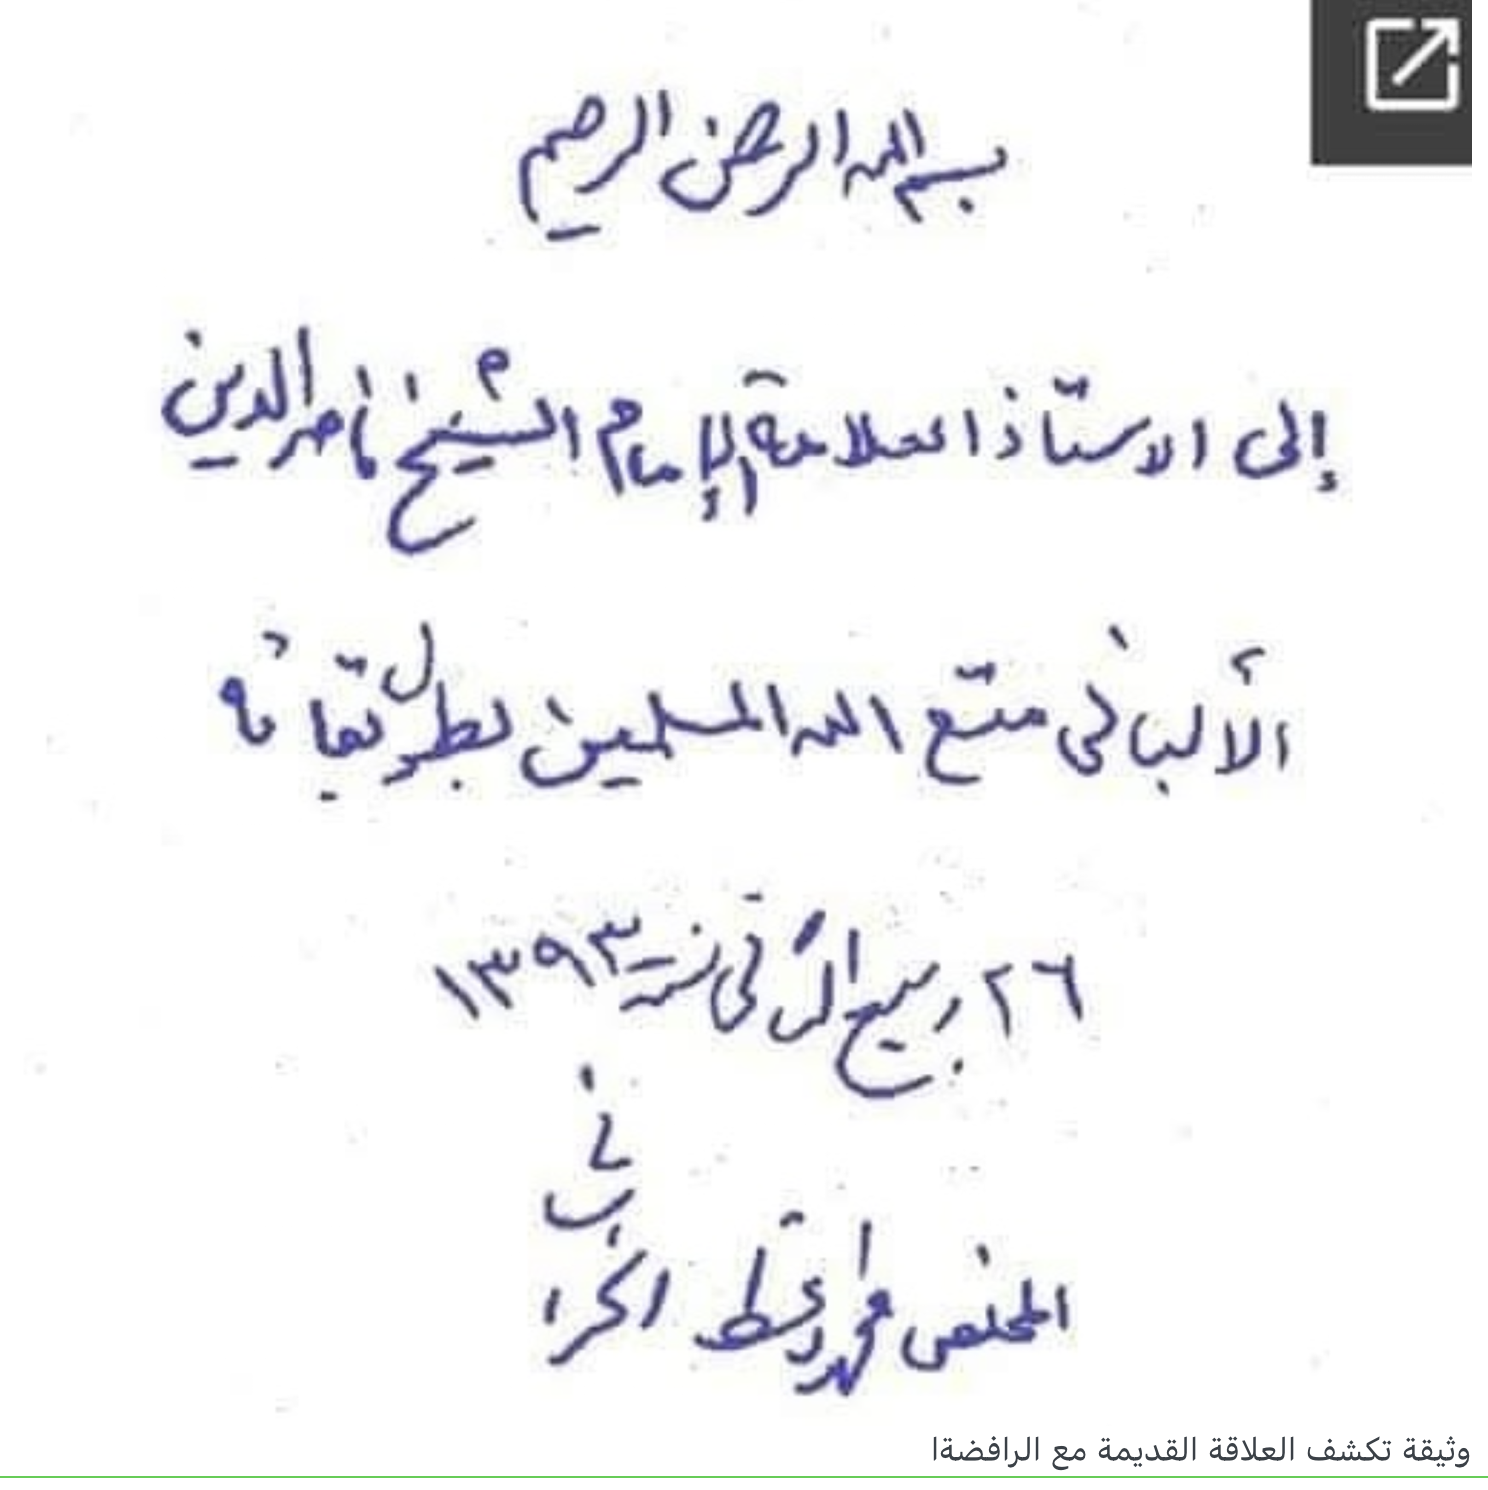 بسم الله الرحمن الرحيم
إلى الاستاذ العلامة الإمام الشيخ ناصر الدين
الألباني متّع الله المسلمين بطول بقائه
٢٦ ربيع الثاني سنة ١٣٩٣
المخلص محمد
وثيقة تكشف العلاقة القديمة مع الرافضة!